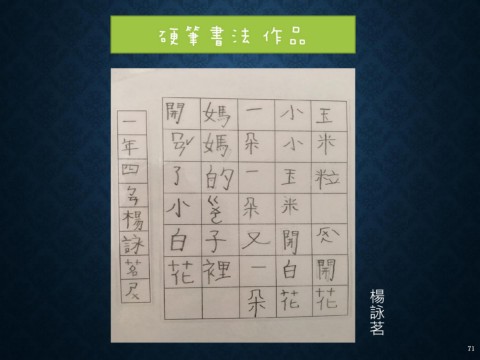 硬筆書法 作品
玉米粒 開花
小小玉米開白花
一朵一朵又一朵
媽媽的子裡
開了小白花
一年四楊詠茗
楊詠茗
71